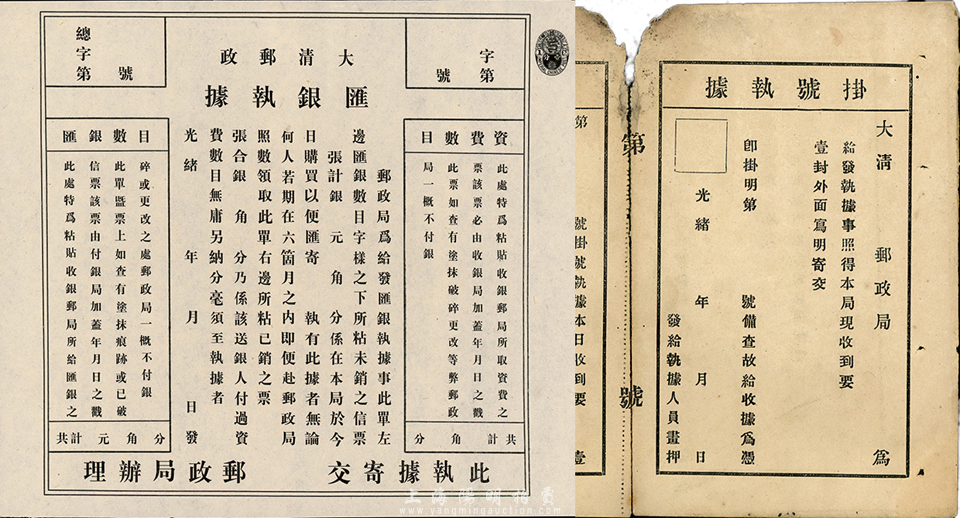 總字第 號
字第 號
大清郵政
匯銀執據
資費數目
此處特爲粘貼收銀郵局所取資費之
票該票必由收銀局加蓋年月日之戳
此票如查有塗抹破碎更改等弊郵政
局一概不付銀
共計 角 分
郵政局爲給發匯銀執據事此單左
邊匯銀數目字樣之下所粘未銷之信票
張計銀 元 角 分係在本局於今
日購買以便匯寄 執有此據者無論
何人若期在六箇月之內即便赴郵政局
照數領取此單右邊所粘已銷之票
張合銀 角 分乃係該送銀人付過資
費數目無庸另納分毫須至執據者
光緒 年 月 日發
匯銀數目
碎或更改之處郵政局一概不付銀
此單曁票上如查有塗抹痕跡或已破
信票該票由付銀局加蓋年月日之戳
此處特爲粘貼收銀郵局所給匯銀之
共計 元 角 分
此執據寄交 郵政局辦理
上海陽明拍賣
www.yangmingauction.com
掛號執據
大清 郵政局 爲
給發執據事照得本局現收到要
壹封外面寫明寄交
卽掛明第 號備查故給收據爲憑
光緒 年 月 日
發給執據人員畫押
第 號
第
號掛號執據本日收到要
壹